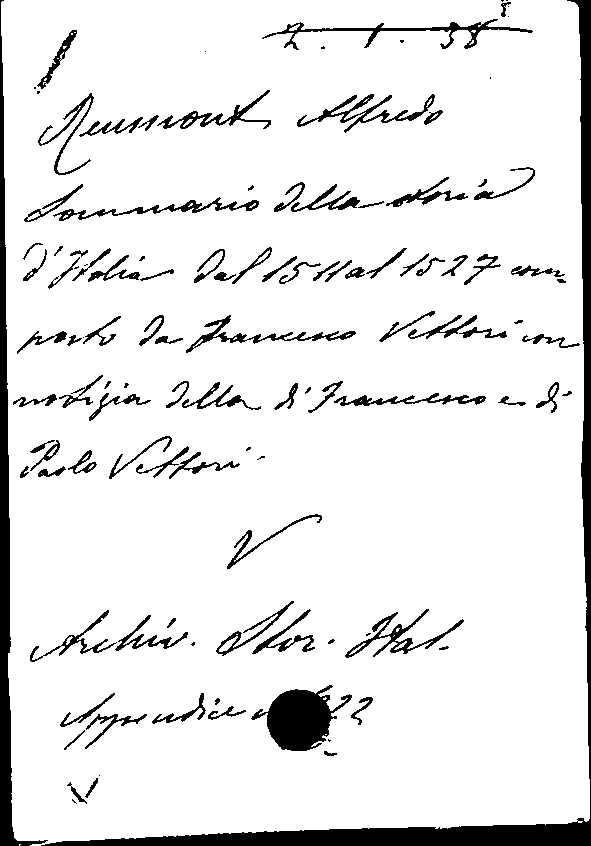 2. 1. 38
Reumont Alfredo
Sommario della storia
d'Italia dal 1511 al 1527 com-
posto da Francesco Vettori con
notizia della di Francesco e di
Paolo Vettori.
V
Archiv. Stor. Ital.
Appendice 22
V